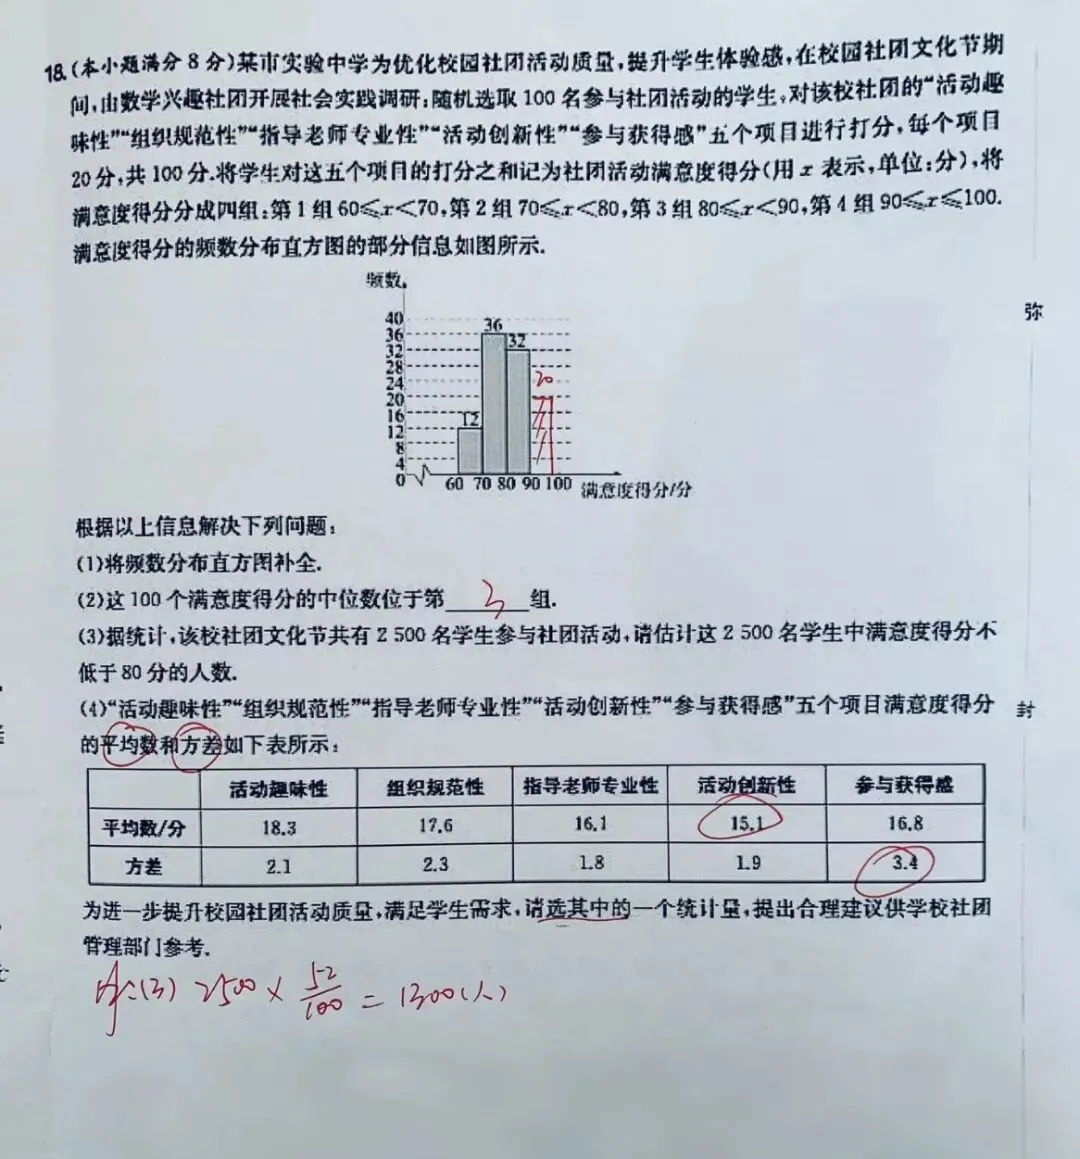 18.(本小题满分8分)某市实验中学为优化校园社团活动质量,提升学生体验感,在校园社团文化节期
间,由数学兴趣社团开展社会实践调研:随机选取100名参与社团活动的学生,对该校社团的“活动趣
味性”“组织规范性”“指导老师专业性”“活动创新性”“参与获得感”五个项目进行打分,每个项目
20分,共100分.将学生对这五个项目的打分之和记为社团活动满意度得分(用x表示,单位:分),将
满意度得分分成四组:第1组60≤x<70,第2组70≤x<80,第3组80≤x<90,第4组90≤x≤100.
满意度得分的频数分布直方图的部分信息如图所示.
频数
40
36
32
28
24
20
16
12
8
4
0
12
36
32
20
60 70 80 90 100 满意度得分/分
弥
根据以上信息解决下列问题:
(1)将频数分布直方图补全.
(2)这100个满意度得分的中位数位于第 3 组.
(3)据统计,该校社团文化节共有2 500名学生参与社团活动,请估计这2 500名学生中满意度得分不
低于80分的人数.
(4)“活动趣味性”“组织规范性”“指导老师专业性”“活动创新性”“参与获得感”五个项目满意度得分
封
的平均数和方差如下表所示:
活动趣味性 组织规范性 指导老师专业性 活动创新性 参与获得感
平均数/分 18.3 17.6 16.1 15.1 16.8
方差 2.1 2.3 1.8 1.9 3.4
为进一步提升校园社团活动质量,满足学生需求,请选其中的一个统计量,提出合理建议供学校社团
管理部门参考.
(3) 2500 × 52/100 = 1300(人)